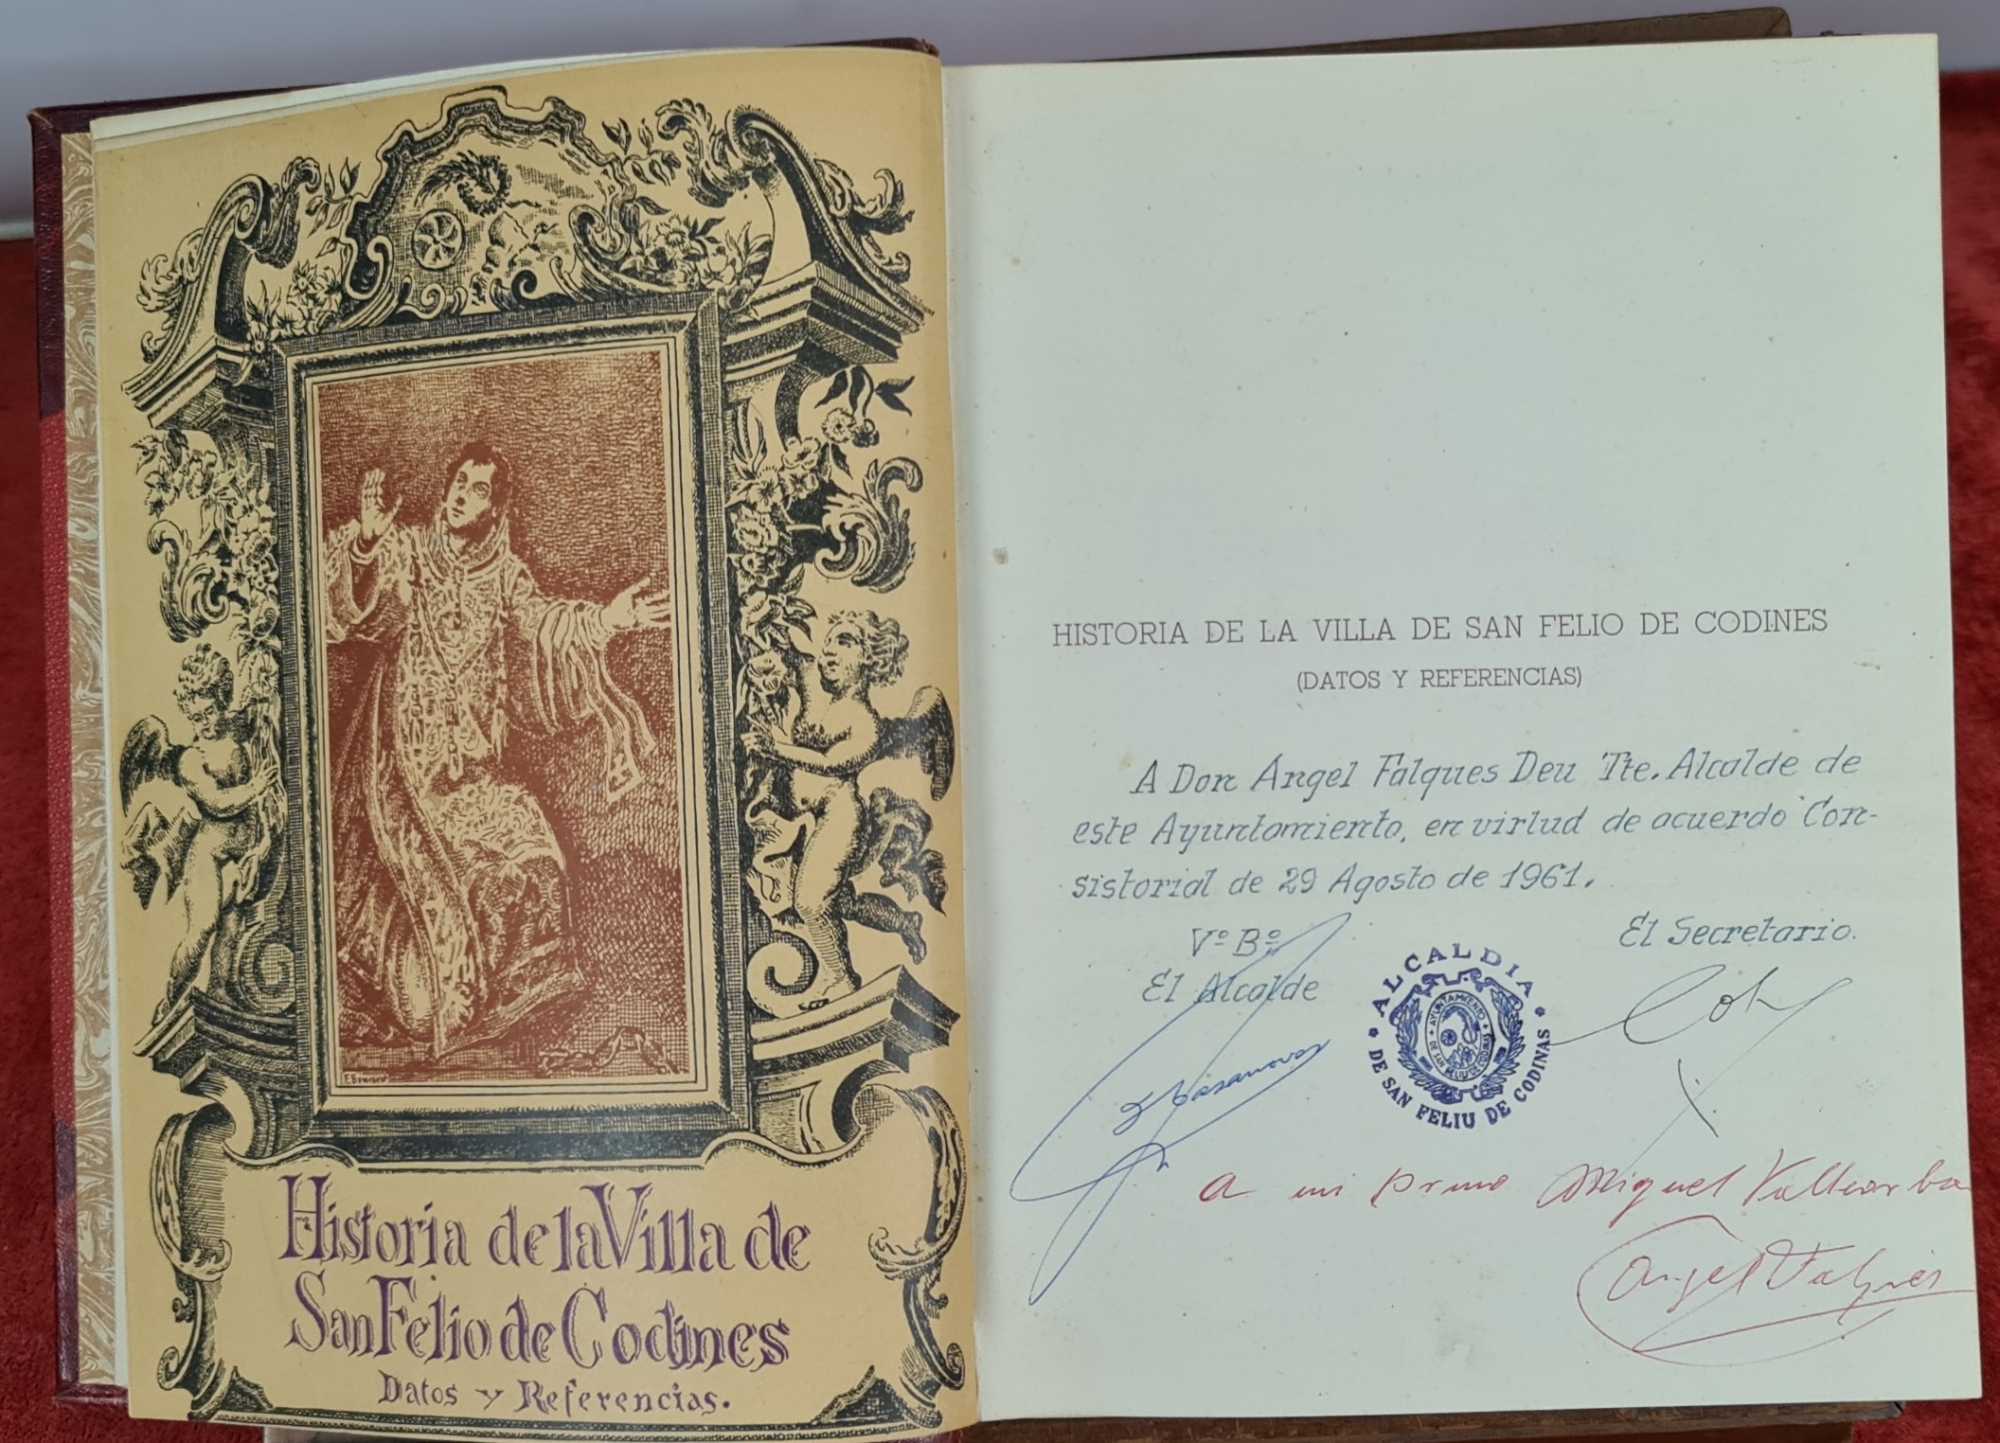 Historia de la Villa de
San Felio de Codines
Datos y Referencias.
HISTORIA DE LA VILLA DE SAN FELIO DE CODINES
(DATOS Y REFERENCIAS)
A Don Angel Falques Deu Tte. Alcalde de
este Ayuntamiento, en virtud de acuerdo Con-
sistorial de 29 Agosto de 1961.
Vº Bº
El Alcalde
El Secretario.
ALCALDIA
DE SAN FELIU DE CODINAS
AYUNTAMIENTO
DE SAN FELIU DE CODINAS
a mi primo Miguel
Angel Falques